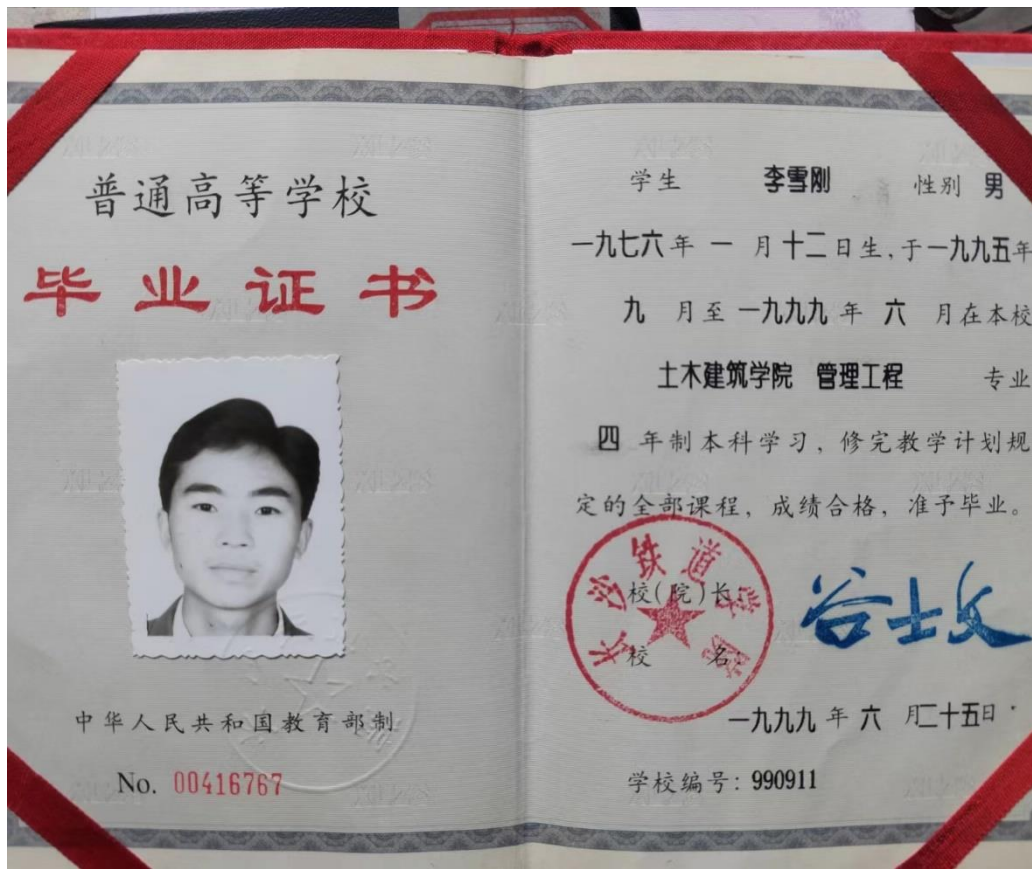 普通高等学校
毕业证书
中华人民共和国教育部制
No. 00416767
学生 李雪刚 性别 男
一九七六年 一 月十二日生,于一九九五年
九 月至一九九九年 六 月在本校
土木建筑学院 管理工程 专业
四 年制本科学习,修完教学计划规
定的全部课程,成绩合格,准予毕业。
长沙铁道学院
校(院)长:
谷士文
校 名:
一九九九年六月二十五日
学校编号:990911